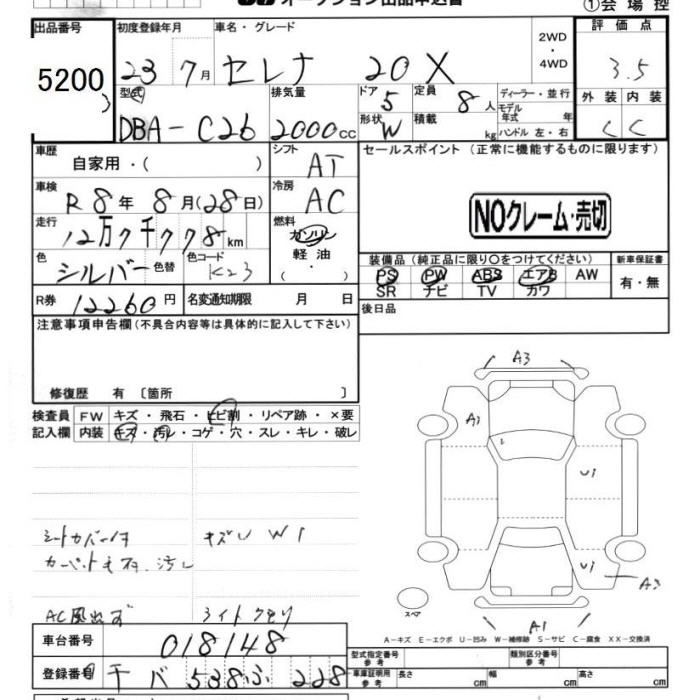 オークション出品申込書
①会場控
出品番号 初度登録年月 車名・グレード 評価点
5200 23 7月 セレナ 20X 2WD ・ 4WD 3.5
型式 排気量 ドア 5 定員 8人 ディーラー・並行 外装 内装
DBA-C26 2000cc 形状 W 積載 kg モデル年式 年 ハンドル 左・右 C C
車歴 シフト セールスポイント (正常に機能するものに限ります)
自家用・( ) AT
車検 冷房
R8年 8月(28日) AC NOクレーム・売切
走行 燃料
12万7千778km ガソリン
軽油
・( )
色 シルバー 色替 色コード K23
装備品 (純正品に限り○をつけてください) 新車保証書
PS PW ABS エアB AW 有・無
SR ナビ TV カワ
R券 12260円 名変通知期限 月 日 後日品
注意事項申告欄(不具合内容等は具体的に記入して下さい)
修復歴 有 〔箇所 〕
検査員 FW キズ・飛石・ヒビ割・リペア跡・×要
記入欄 内装 キズ・汚レ・コゲ・穴・スレ・キレ・破レ
A3
U1
U1
A3
A1
スペア
シートカバー付 キズU W1
AC風出ず ライトクモリ
A-キズ E-エクボ U-凹み W-補修跡 S-サビ C-腐食 XX-交換済
車台番号 018148
型式指定番号 参考 類別区分番号 参考
登録番号 千バ 538 ふ 228
車庫証明用 参考 長さ cm 幅 cm 高さ cm